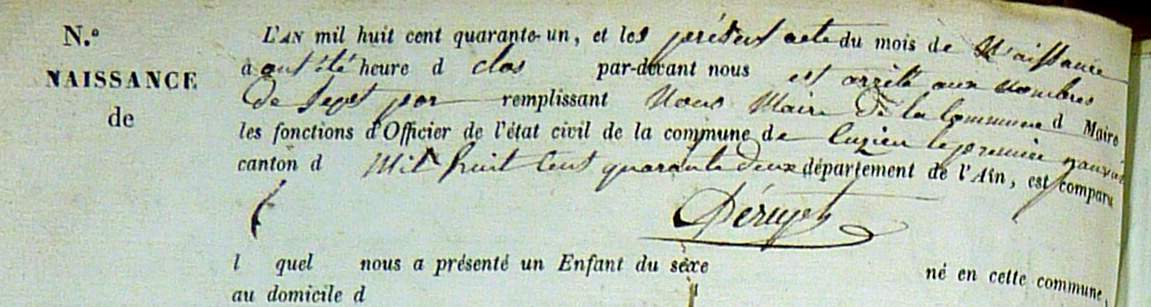 N.º
NAISSANCE
de
L'AN mil huit cent quarante-un, et le présent acte du mois de Naissance
à ont été heure d clos par-devant nous est arrêté aux nombres
de Sept par remplissant Nous Maire de la Commune d Maire
les fonctions d'Officier de l'état civil de la commune de Cuzieu le premier janvier
canton d Mil huit Cent quarante deux département de l'Ain, est comparu
l quel nous a présenté un Enfant du sexe né en cette commune,
au domicile d